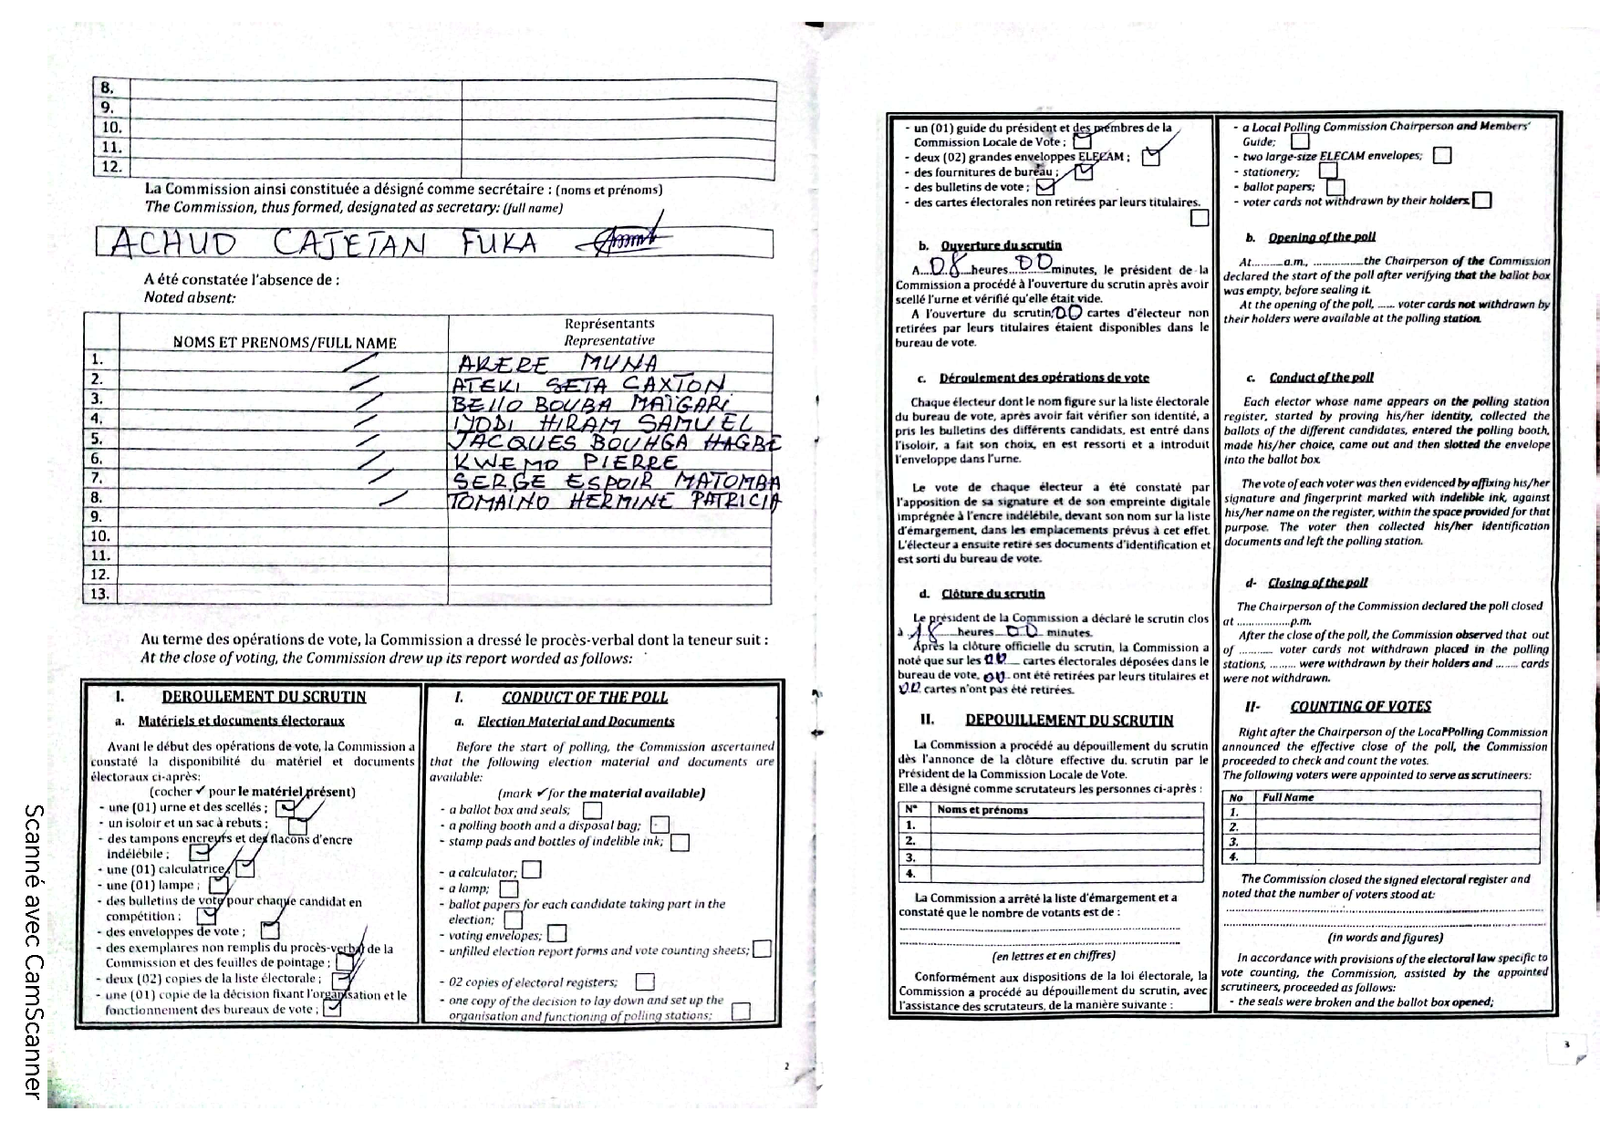 8.
9.
10.
11.
12.
La Commission ainsi constituée a désigné comme secrétaire : (noms et prénoms)
The Commission, thus formed, designated as secretary: (full name)
ACHUO CAJETAN FUKA
A été constatée l'absence de :
Noted absent:
NOMS ET PRENOMS/FULL NAME
Représentants
Representative
1. AKERE MUNA
2. ATEKI SETA CAXTON
3. BELLO BOUBA MAÏGARI
4. IYODI HIRAM SAMUEL
5. JACQUES BOUHGA HAGBE
6. KWEMO PIERRE
7. SERGE ESPOIR MATOMBA
8. TOMAINO HERMINE PATRICIA
9.
10.
11.
12.
13.
Au terme des opérations de vote, la Commission a dressé le procès-verbal dont la teneur suit :
At the close of voting, the Commission drew up its report worded as follows:
I. DEROULEMENT DU SCRUTIN
a. Matériels et documents électoraux
Avant le début des opérations de vote, la Commission a
constaté la disponibilité du matériel et documents
électoraux ci-après:
(cocher ✓ pour le matériel présent)
- une (01) urne et des scellés ;
- un isoloir et un sac à rebuts ;
- des tampons encreurs et des flacons d'encre
indélébile ;
- une (01) calculatrice ;
- une (01) lampe ;
- des bulletins de vote pour chaque candidat en
compétition ;
- des enveloppes de vote ;
- des exemplaires non remplis du procès-verbal de la
Commission et des feuilles de pointage ;
- deux (02) copies de la liste électorale ;
- une (01) copie de la décision fixant l'organisation et le
fonctionnement des bureaux de vote ;
I. CONDUCT OF THE POLL
a. Election Material and Documents
Before the start of polling, the Commission ascertained
that the following election material and documents are
available:
(mark ✓ for the material available)
- a ballot box and seals;
- a polling booth and a disposal bag;
- stamp pads and bottles of indelible ink;
- a calculator;
- a lamp;
- ballot papers for each candidate taking part in the
election;
- voting envelopes;
- unfilled election report forms and vote counting sheets;
- 02 copies of electoral registers;
- one copy of the decision to lay down and set up the
organisation and functioning of polling stations;
2
- un (01) guide du président et des membres de la
Commission Locale de Vote ;
- deux (02) grandes enveloppes ELECAM ;
- des fournitures de bureau ;
- des bulletins de vote ;
- des cartes électorales non retirées par leurs titulaires.
b. Ouverture du scrutin
A...08...heures...00...minutes, le président de la
Commission a procédé à l'ouverture du scrutin après avoir
scellé l'urne et vérifié qu'elle était vide.
A l'ouverture du scrutin, 00 cartes d'électeur non
retirées par leurs titulaires étaient disponibles dans le
bureau de vote.
c. Déroulement des opérations de vote
Chaque électeur dont le nom figure sur la liste électorale
du bureau de vote, après avoir fait vérifier son identité, a
pris les bulletins des différents candidats, est entré dans
l'isoloir, a fait son choix, en est ressorti et a introduit
l'enveloppe dans l'urne.
Le vote de chaque électeur a été constaté par
l'apposition de sa signature et de son empreinte digitale
imprégnée à l'encre indélébile, devant son nom sur la liste
d'émargement, dans les emplacements prévus à cet effet.
L'électeur a ensuite retiré ses documents d'identification et
est sorti du bureau de vote.
d. Clôture du scrutin
Le président de la Commission a déclaré le scrutin clos
à 18 heures 00 minutes.
Après la clôture officielle du scrutin, la Commission a
noté que sur les 00 cartes électorales déposées dans le
bureau de vote, 00 ont été retirées par leurs titulaires et
00 cartes n'ont pas été retirées.
II. DEPOUILLEMENT DU SCRUTIN
La Commission a procédé au dépouillement du scrutin
dès l'annonce de la clôture effective du scrutin par le
Président de la Commission Locale de Vote.
Elle a désigné comme scrutateurs les personnes ci-après :
N° Noms et prénoms
1.
2.
3.
4.
La Commission a arrêté la liste d'émargement et a
constaté que le nombre de votants est de :
(en lettres et en chiffres)
Conformément aux dispositions de la loi électorale, la
Commission a procédé au dépouillement du scrutin, avec
l'assistance des scrutateurs, de la manière suivante :
- a Local Polling Commission Chairperson and Members'
Guide;
- two large-size ELECAM envelopes;
- stationery;
- ballot papers;
- voter cards not withdrawn by their holders.
b. Opening of the poll
At..........a.m., ..............the Chairperson of the Commission
declared the start of the poll after verifying that the ballot box
was empty, before sealing it.
At the opening of the poll, ...... voter cards not withdrawn by
their holders were available at the polling station.
c. Conduct of the poll
Each elector whose name appears on the polling station
register, started by proving his/her identity, collected the
ballots of the different candidates, entered the polling booth,
made his/her choice, came out and then slotted the envelope
into the ballot box.
The vote of each voter was then evidenced by affixing his/her
signature and fingerprint marked with indelible ink, against
his/her name on the register, within the space provided for that
purpose. The voter then collected his/her identification
documents and left the polling station.
d- Closing of the poll
The Chairperson of the Commission declared the poll closed
at ...................p.m.
After the close of the poll, the Commission observed that out
of ........... voter cards not withdrawn placed in the polling
stations, ......... were withdrawn by their holders and ....... cards
were not withdrawn.
II- COUNTING OF VOTES
Right after the Chairperson of the Local Polling Commission
announced the effective close of the poll, the Commission
proceeded to check and count the votes.
The following voters were appointed to serve as scrutineers:
No Full Name
1.
2.
3.
4.
The Commission closed the signed electoral register and
noted that the number of voters stood at:
(in words and figures)
In accordance with provisions of the electoral law specific to
vote counting, the Commission, assisted by the appointed
scrutineers, proceeded as follows:
- the seals were broken and the ballot box opened;
3
Scanné avec CamScanner